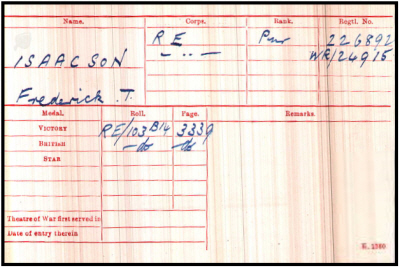 Name. Corps. Rank. Regtl. No.
R E Pnr 226892
ISAACSON — " — WR/24915
Frederick .T.
Medal. Roll. Page. Remarks.
VICTORY RE/103B14 3339
BRITISH —do— —do—
STAR
Theatre of War first served in
Date of entry therein
K. 1380